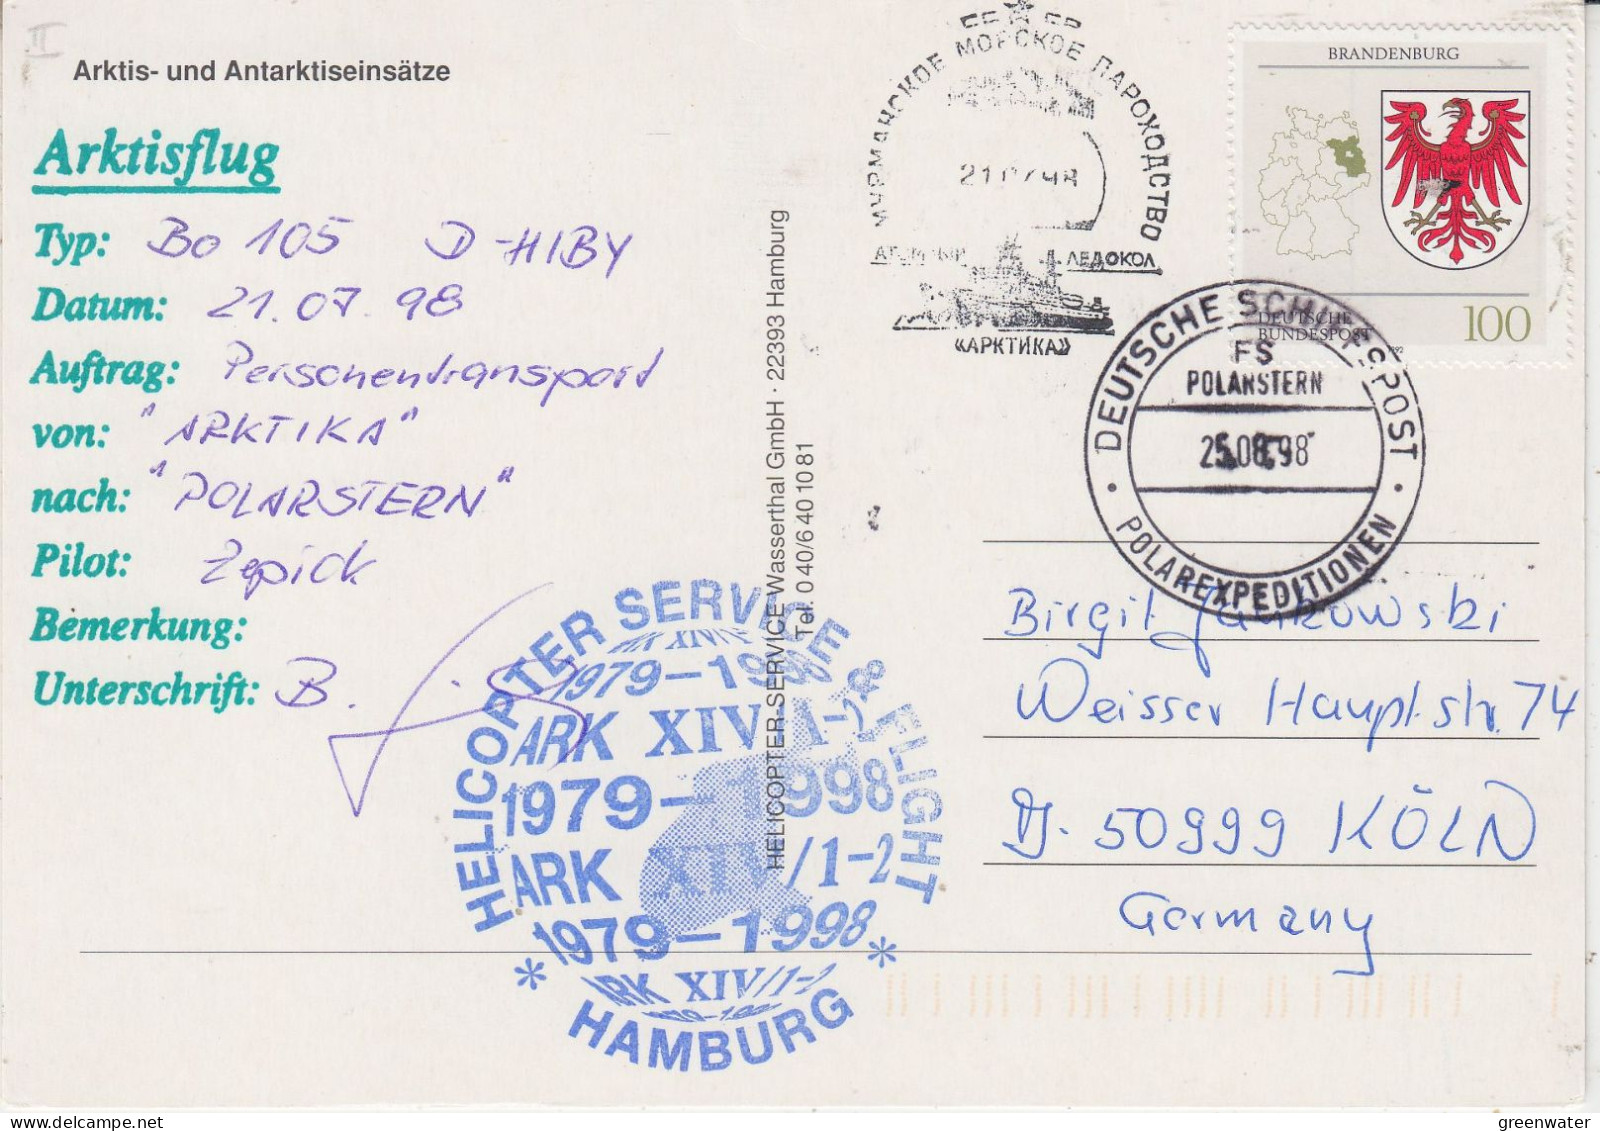 Arktis- und Antarktiseinsätze
Arktisflug
Typ: Bo 105 D-HIBY
Datum: 21.07.98
Auftrag: Personentransport
von: "ARKTIKA"
nach: "POLARSTERN"
Pilot: Zepick
Bemerkung:
Unterschrift: B.
HELICOPTER SERVICE & FLIGHT
1979-1998
ARK XIV/1-2
1979-1998
ARK XIV/1-2
1979-1998
ARK XIV/1-2
* HAMBURG *
HELICOPTER-SERVICE Wasserthal GmbH · 22393 Hamburg
Tel. 0 40/6 40 10 81
МУРМАНСКОЕ МОРСКОЕ ПАРОХОДСТВО
21.07.98
АТОМНЫЙ ЛЕДОКОЛ
«АРКТИКА»
BRANDENBURG
DEUTSCHE
BUNDESPOST
1992
100
DEUTSCHE SCHIFFSPOST
FS
POLARSTERN
25.08.98
· POLAREXPEDITIONEN ·
Birgit Jankowski
Weisser Hauptstr. 74
D-50999 KÖLN
Germany
greenwater